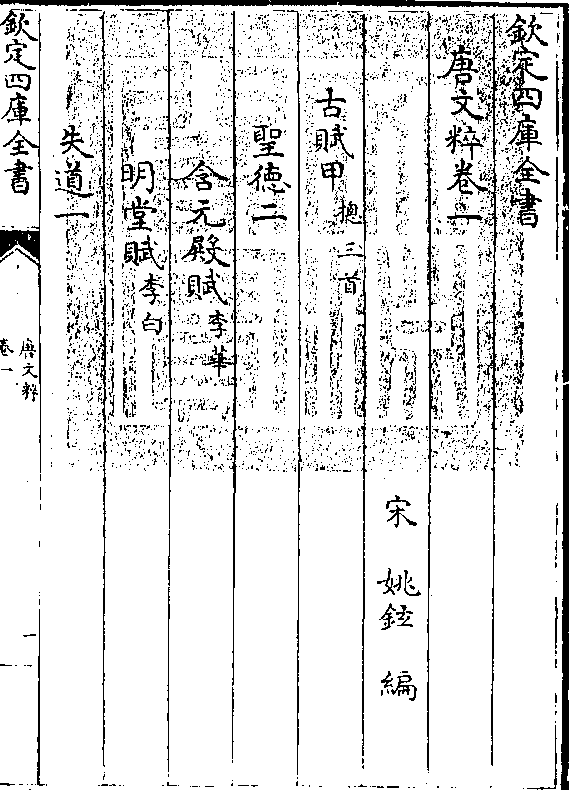 欽定四庫全書
唐文粹卷一
宋 姚鉉 編
古賦甲 摠三首
聖德二
含元殿賦 李華
明堂賦 李白
失道一
欽定四庫全書
唐文粹
卷一
一